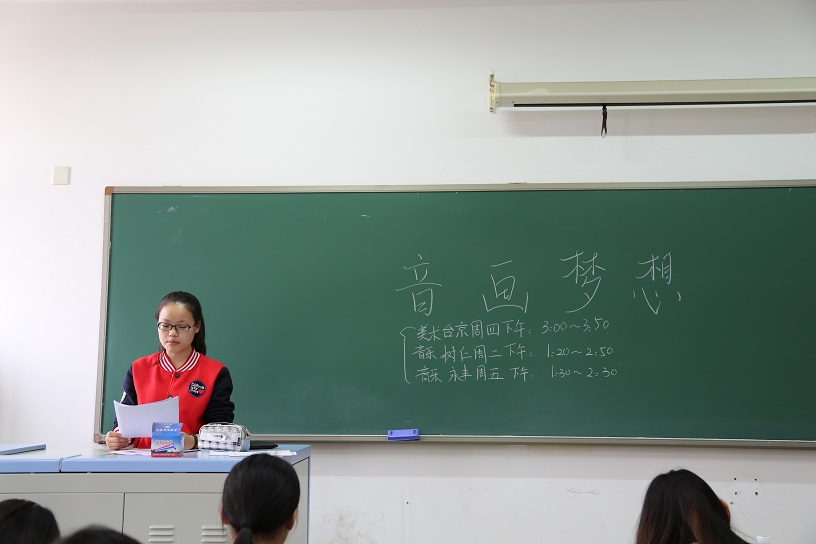 音画梦想
美术 台京 周四下午: 3:00~3:50
音乐 树仁 周二 下午: 1:20~2:50
音乐 永丰 周五 下午: 1:30~2:30